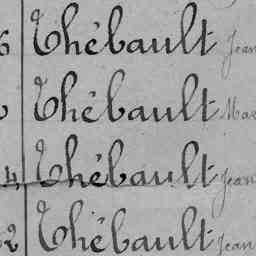 6 Thébault Jean
Thébault Mar
4 Thébault Jean
2 Thébault Jean